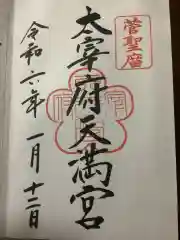 菅聖廟
太宰府天満宮
令和六年一月十二日